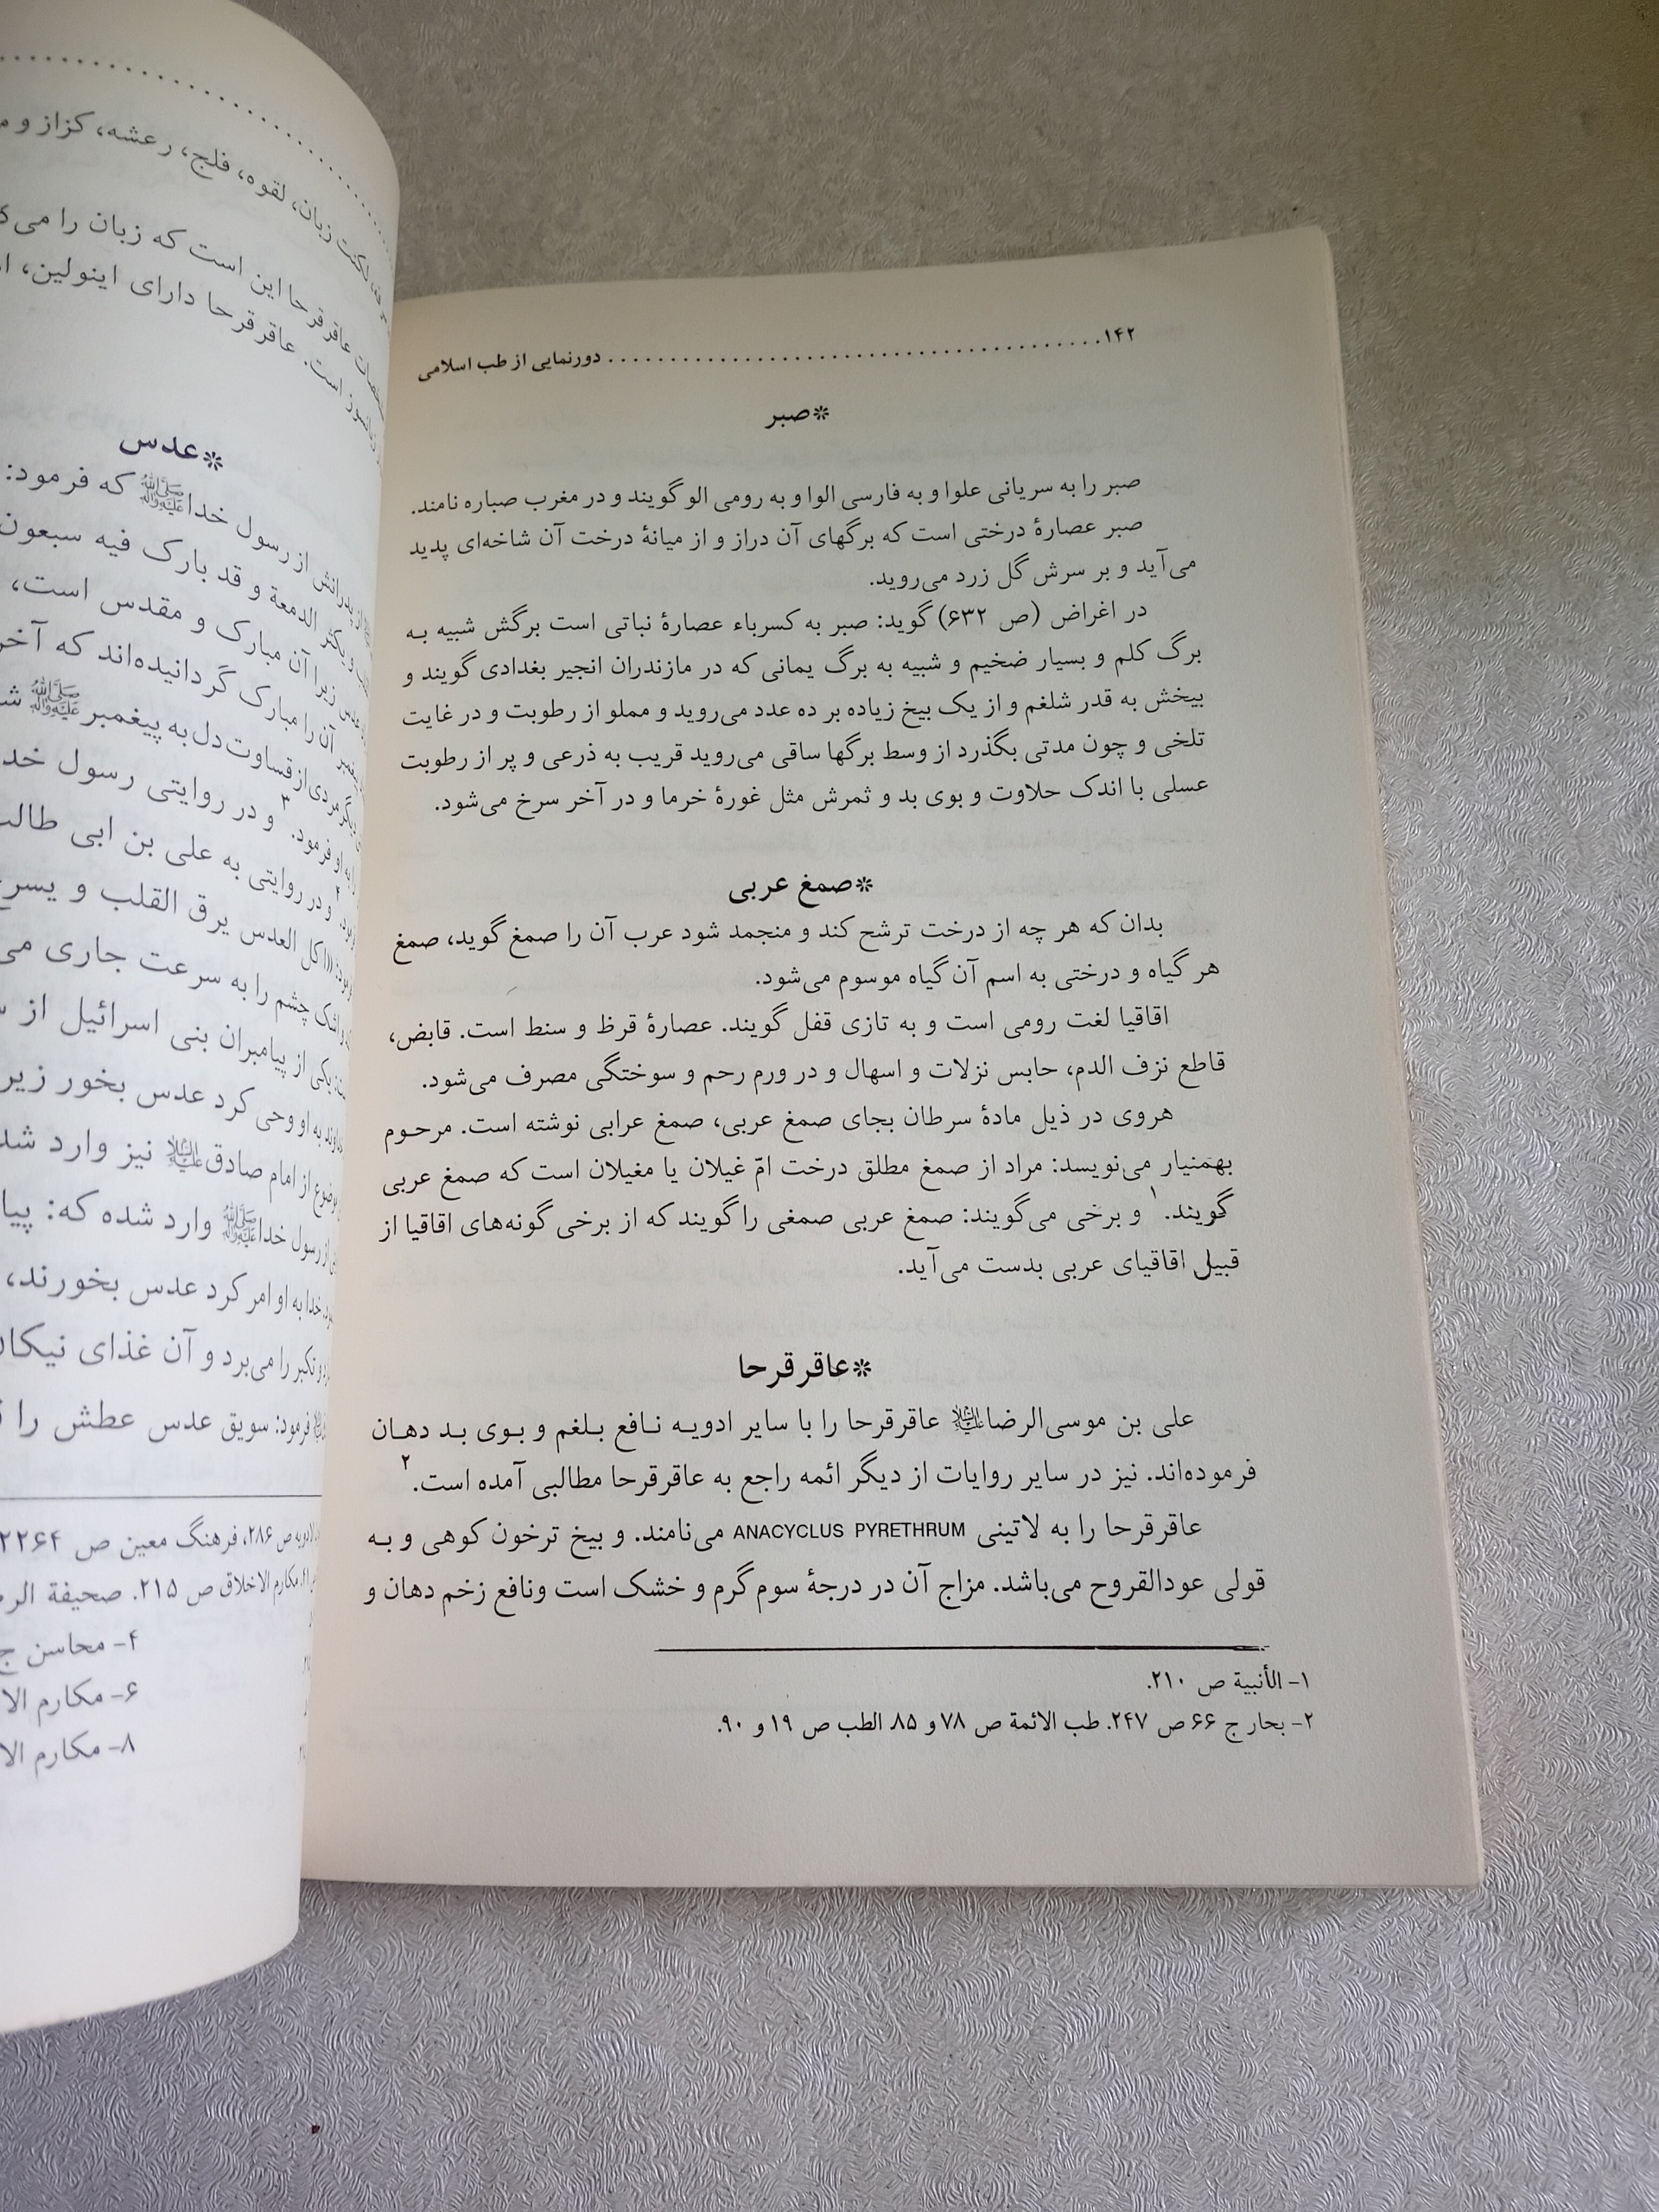 ۱۴۲ ........................................ دورنمایی از طب اسلامی
*صبر
صبر را به سریانی علوا و به فارسی الوا و به رومی الو گویند و در مغرب صباره نامند.
صبر عصارهٔ درختی است که برگهای آن دراز و از میانهٔ درخت آن شاخه‌ای پدید
می‌آید و بر سرش گل زرد می‌روید.
در اغراض (ص ۶۳۲) گوید: صبر به کسرباء عصارهٔ نباتی است برگش شبیه به
برگ کلم و بسیار ضخیم و شبیه به برگ یمانی که در مازندران انجیر بغدادی گویند و
بیخش به قدر شلغم و از یک بیخ زیاده بر ده عدد می‌روید و مملو از رطوبت و در غایت
تلخی و چون مدتی بگذرد از وسط برگها ساقی می‌روید قریب به ذرعی و پر از رطوبت
عسلی با اندک حلاوت و بوی بد و ثمرش مثل غورهٔ خرما و در آخر سرخ می‌شود.
*صمغ عربی
بدان که هر چه از درخت ترشح کند و منجمد شود عرب آن را صمغ گوید، صمغ
هر گیاه و درختی به اسم آن گیاه موسوم می‌شود.
اقاقیا لغت رومی است و به تازی قفل گویند. عصارهٔ قرظ و سنط است. قابض،
قاطع نزف الدم، حابس نزلات و اسهال و در ورم رحم و سوختگی مصرف می‌شود.
هروی در ذیل مادهٔ سرطان بجای صمغ عربی، صمغ عرابی نوشته است. مرحوم
بهمنیار می‌نویسد: مراد از صمغ مطلق درخت امّ غیلان یا مغیلان است که صمغ عربی
گویند.۱ و برخی می‌گویند: صمغ عربی صمغی را گویند که از برخی گونه‌های اقاقیا از
قبیل اقاقیای عربی بدست می‌آید.
*عاقرقرحا
علی بن موسی‌الرضا علیه‌السلام عاقرقرحا را با سایر ادویه نافع بلغم و بوی بد دهان
فرموده‌اند. نیز در سایر روایات از دیگر ائمه راجع به عاقرقرحا مطالبی آمده است.۲
عاقرقرحا را به لاتینی ANACYCLUS PYRETHRUM می‌نامند. و بیخ ترخون کوهی و به
قولی عودالقروح می‌باشد. مزاج آن در درجهٔ سوم گرم و خشک است ونافع زخم دهان و
۱- الأنبیة ص ۲۱۰.
۲- بحار ج ۶۶ ص ۲۴۷. طب الائمة ص ۷۸ و ۸۵. الطب ص ۱۹ و ۹۰.
لکنت زبان، لقوه، فلج، رعشه، کزاز و
عاقرقرحا این است که زبان را
است. عاقرقرحا دارای اینولین،
*عدس
از رسول خدا ﷺ که فرمود:
الدمعة و قد بارک فیه سبعون
زیرا آن مبارک و مقدس است،
آن را مبارک گردانیده‌اند که
مردی از قساوت دل به پیغمبر ﷺ
فرمود.۳ و در روایتی رسول
و در روایتی به علی بن ابی
اکل العدس یرق القلب و
چشم را به سرعت جاری
یکی از پیامبران بنی اسرائیل از
به او وحی کرد عدس بخور
از امام صادق علیه‌السلام نیز وارد
از رسول خدا ﷺ وارد شده که:
خدا به او امر کرد عدس بخورند،
و تکبر را می‌برد و آن غذای
فرمود: سویق عدس عطش را
ص ۲۸۶، فرهنگ معین ص ۲۲۶۴
مکارم الاخلاق ص ۲۱۵. صحیفة
۴- محاسن ج
۶- مکارم
۸- مکارم